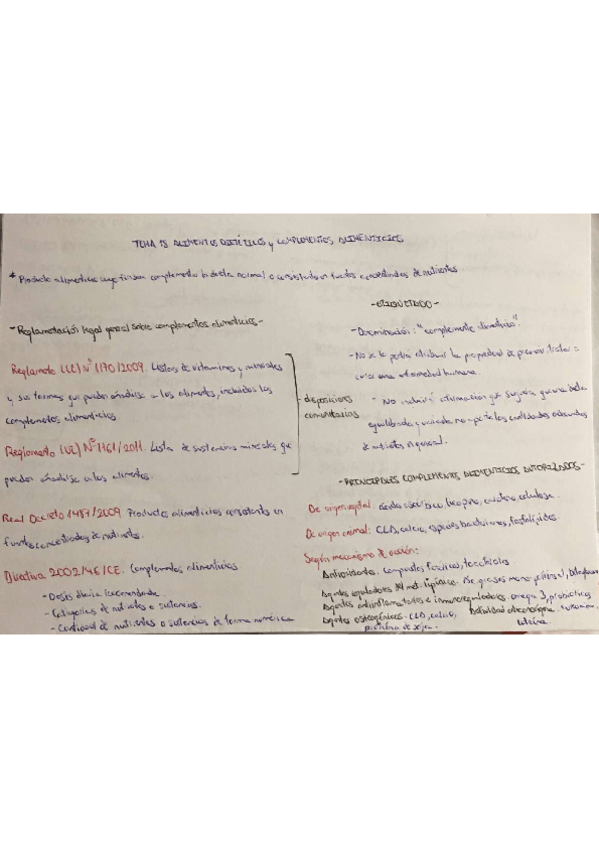 TEMA 18 ALIMENTOS DIETÉTICOS y COMPLEMENTOS ALIMENTICIOS
* Producto alimenticio cuyo fin sea complementar la dieta normal o consistentes en fuentes concentradas de nutrientes.
- Reglamentación legal general sobre complementos alimenticios -
Reglamento (UE) Nº 1170/2009. Listas de vitaminas y minerales
y sus formas que pueden añadirse a los alimentos, incluidos los
complementos alimenticios
Reglamento (UE) Nº 1161/2011. Lista de sustancias minerales que
pueden añadirse a los alimentos.
disposiciones
comunitarias
Real Decreto 1487/2009 Productos alimenticios consistentes en
fuentes concentradas de nutrientes.
Directiva 2002/46/CE. Complementos alimenticios
- Dosis diaria recomendada.
- Categorías de nutrientes o sustancias.
- Cantidad de nutrientes o sustancias de forma numérica
- ETIQUETADO -
- Denominación: "complemento alimenticio".
- No se le podrá atribuir la propiedad de prevenir, tratar o
curar una enfermedad humana.
- No incluirá afirmación que sugiera que una dieta
equilibrada y variada no aporta las cantidades adecuadas
de nutrientes en general.
- PRINCIPALES COMPLEMENTOS ALIMENTICIOS AUTORIZADOS -
De origen vegetal: ácido ascórbico, licopeno, celulosa.
De origen animal: CLA, calcio, especies bacterianas, fosfolípidos
Según mecanismo de acción:
Antioxidantes. Compuestos fenólicos, tocoferoles
Agentes reguladores del met. lipídico. Ac grasos mono y poliinsat,
Agentes antiinflamatorios e inmunoreguladores. omega 3, probióticos
Agentes osteogénicos. CLA, calcio,
proteína de soja.
Actividad anticancerígena
luteína.